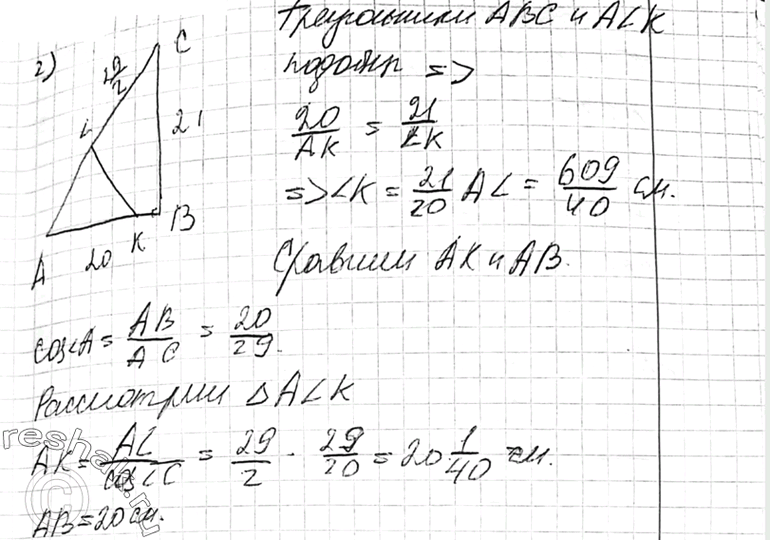 Треугольники ABC и ALK
подобны =>
20/AK = 21/LK
=> LK = 21/20 AL = 609/40 см.
Сравним AK и AB.
2)
C
29/2
L
21
B
K
A
20
cos∠A = AB/AC = 20/29.
Рассмотрим △ALK
AK = AL/cos∠C = 29/2 · 29/20 = 20 1/40 см.
AB = 20 см.
reshak.ru
©